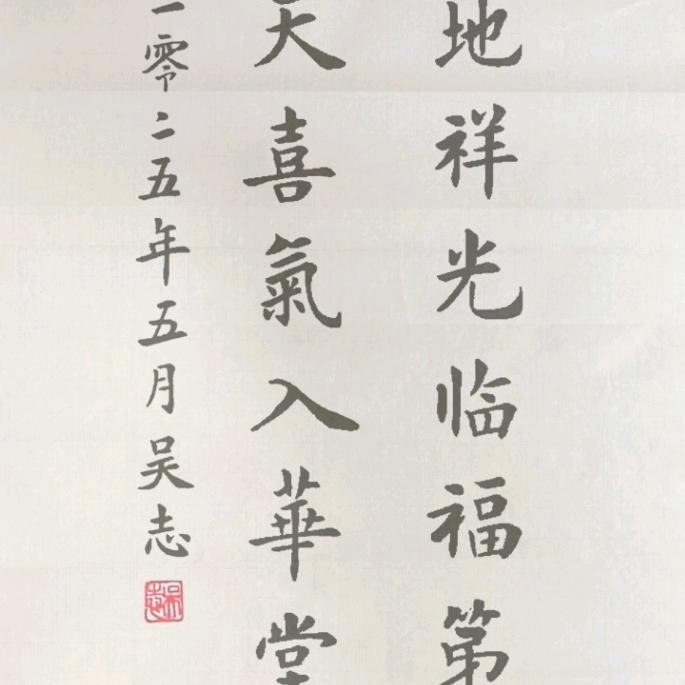 地祥光临福第
天喜氣入華堂
二零二五年五月吴志
吴志